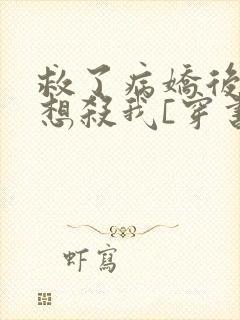 救了病嬌後
想殺我[穿書
虾寫